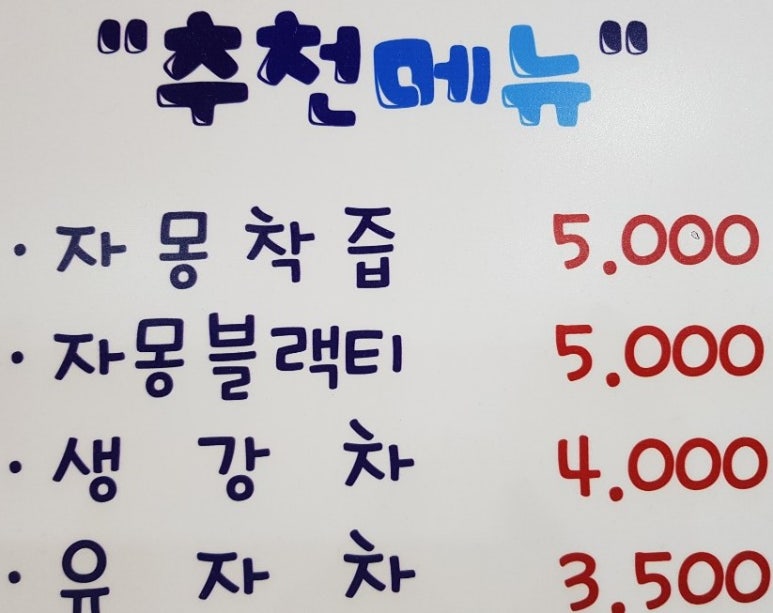 "추천메뉴"
· 자몽착즙 5.000
· 자몽블랙티 5.000
· 생강차 4.000
· 유자차 3.500